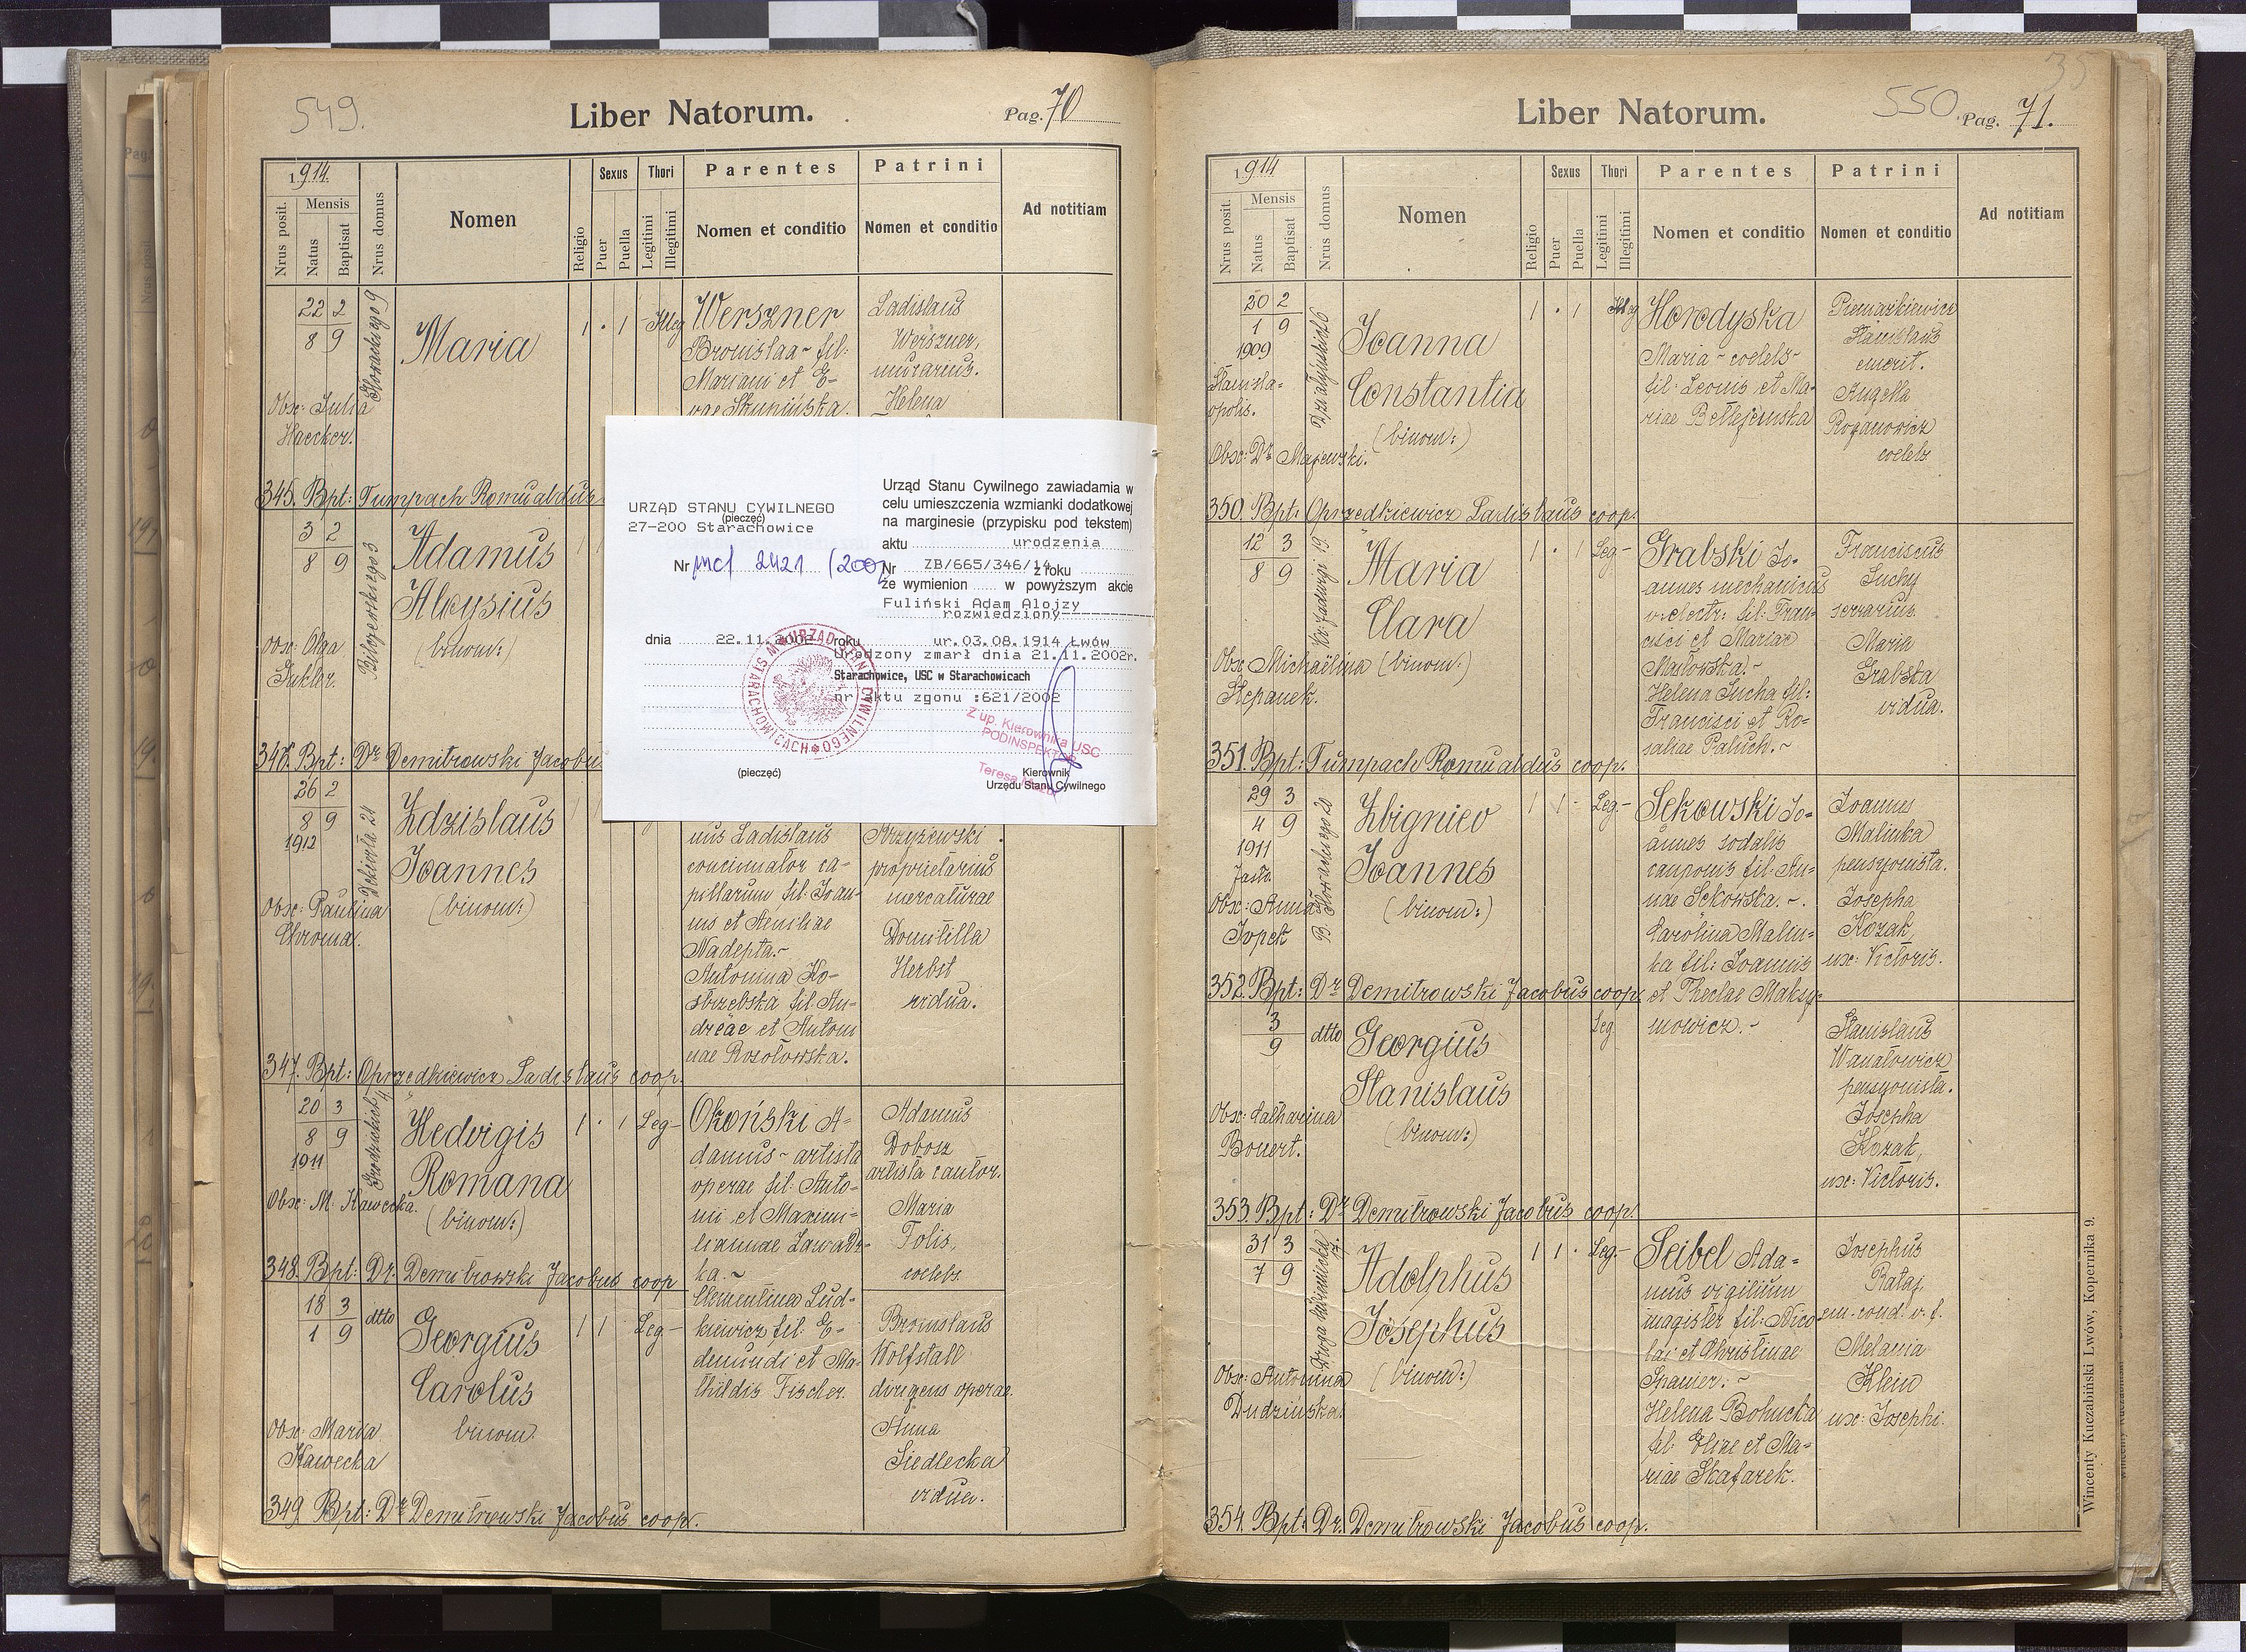 549.
Liber Natorum.
Pag. 70
1914.
Nrus posit.
Mensis
Natus
Baptisat
Nrus domus
Nomen
Religio
Sexus
Puer
Puella
Thori
Legitimi
Illegitimi
Parentes
Nomen et conditio
Patrini
Nomen et conditio
Ad notitiam
22 2
8 9
Słowackiego 9
Maria
1 · 1 Illeg
Werszner
Bronislaa ~ fil:
Mariani et E-
Ladislaus
Werszner,
murarius.
Helena
Obx: Julia
Haecker.
345. Bpt: Tumpach Romualdus
3 2
8 9
Bilczewskiego 3
Adamus
Aloysius
(binom:)
Obx: Olga
346. Bpt: Dr Demitrowski Jacobu
26 2
8 9
1912
24
Zdzislaus
Joannes
(binom:)
Obx: Paulina
Chroma.
nus Ladislaus
concinnator ca-
pillorum fil: Joan-
nis et Aemiliae
Nadepta.-
Antonina Ko-
strzebska fil. An-
dreae et Antoni
nae Rosołowska.
Krzyszewski
proprietarius
mercaturae
Domitilla
Herbst
vidua.
347. Bpt: Oprzedkiewicz Ladislaus coop.
20 3
8 9
1911
Grodzickich 4
Hedvigis
Romana
(binom:)
1 · 1 Leg-
Okoński A-
damus ~ artista
operae fil: Anto-
ni et Maximi-
lianae Zawadz-
ka. ~
Clementina Lud-
kiewicz fil: E-
dmundi et Ma-
thildis Fischer.
Adamus
Dobosz
artista cantor.
Maria
Folis,
coelebs.
Obx: M. Kawecka.
348. Bpt: Dr. Demitrowski Jacobus coop
18 3
1 9
dtto
Georgius
Carolus
binom:
1 1 Leg.-
Bronislaus
Wolfstall
dirigens operae.
Anna
Siedlecka
vidua.
Obx: Maria
Kawecka
349. Bpt: Dr Demitrowski Jacobus coop.
URZĄD STANU CYWILNEGO
(pieczęć)
27-200 Starachowice
Nr mcl 2421 /2002
dnia 22.11.2002 roku
Urząd Stanu Cywilnego zawiadamia w
celu umieszczenia wzmianki dodatkowej
na marginesie (przypisku pod tekstem)
aktu urodzenia
Nr ZB/665/346/14 z roku
że wymienion ...... w powyższym akcie
Fuliński Adam Alojzy
rozwiedziony
ur.03.08.1914 Lwów
Urodzony zmarł dnia 21.11.2002r.
Starachowice, USC w Starachowicach
nr aktu zgonu :621/2002
URZĄD STANU CYWILNEGO W STARACHOWICACH
Z up. Kierownika USC
PODINSPEKTOR
Teresa
(pieczęć)
Kierownik
Urzędu Stanu Cywilnego
35
Liber Natorum.
550
Pag. 71.
1914
Nrus posit.
Mensis
Natus
Baptisat
Nrus domus
Nomen
Religio
Sexus
Puer
Puella
Thori
Legitimi
Illegitimi
Parentes
Nomen et conditio
Patrini
Nomen et conditio
Ad notitiam
20 2
1 9
1909
Stanisla-
opolis.
Joanna
Constantia
(binom:)
1 · 1 Illeg
Horodyska
Maria - coelebs-
fil: Leonis et Ma-
riae Bełłejewska
Stanislaus
emerit.
Angela
Roganowicz
coelebs
Obx: Dr Majewski.
350. Bpt: Oprzedkiewicz Ladislaus coop.
12 3
8 9
Kr. Jadwigi 19.
Maria
Clara
(binom:)
1 · 1 Leg-
Grabski Jo-
annes mechanicus
v. electr: fil: Fran-
cisci et Mariae
Masłowska.-
Helena Sucha fil:
Francisci et Ro-
saliae Paluch.~
Franciscus
Suchy
serrarius.
Maria
Grabska
vidua.
Obx: Michaëlina
Stepanek.
351. Bpt: Tumpach Romualdus coop.
29 3
4 9
1911
Jasło.
B. Głowackiego 20
Zbigniev
Joannes
(binom:)
1 1 · Leg-
Sekowski Jo-
annes sodalis
cauponis fil: An-
nae Sekowska. -.
Carolina Malin-
ka fil: Joannis
et Theclae Maksy-
mowicz.-
Joannes
Malinka
pensyonista.
Josepha
Kozak,
ux: Victoris.
Obx: Anna
Jopek
352. Bpt: Dr Demitrowski Jacobus coop.
3
9
dtto
Georgius
Stanislaus
(binom:)
Leg
Stanislaus
Wanatowicz
pensyonista.
Josepha
Kozak,
ux: Victoris.
Obx: Catharina
Bonert.
353. Bpt: Dr Demitrowski Jacobus coop.
31 3
7 9
Adolphus
Josephus
(binom:)
1 1 · Leg-
Seibel Ada-
mus vigilium
magister fil: Nico
lai et Christinae
Spanier.-
Helena Bohucka
fil. Eliae et Ma-
riae Skafarek.
Josephus
Rataj,
em. cond. v. f.
Melania
Klein
ux: Josephi.
Obx: Antonina
Dudzińska.
354. Bpt: Dr. Demitrowski Jacobus coop.
Wincenty Kuczabiński Lwów, Kopernika 9.